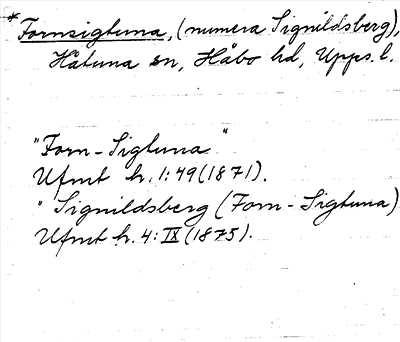 *Fornsigtuna, (numera Signildsberg),
Håtuna sn, Håbo hd, Upps. l.
"Forn-Sigtuna"
Ufmt h. 1:49 (1871).
"Signildsberg (Forn-Sigtuna)
Ufmt h. 4: IX (1875).